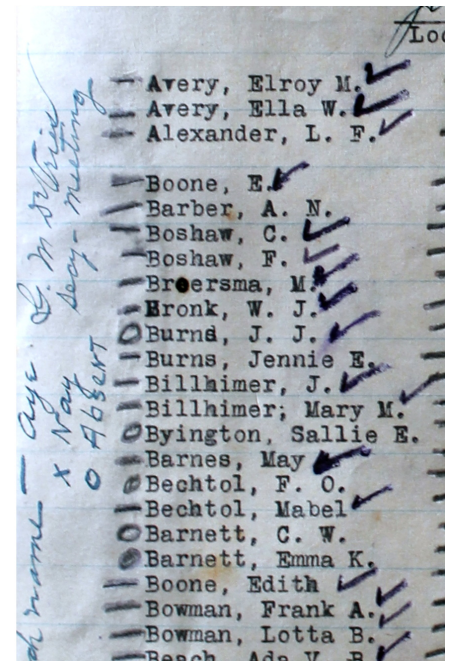 Avery, Elroy M.
Avery, Ella W.
Alexander, L. F.
Boone, E.
Barber, A. N.
Boshaw, C.
Boshaw, F.
Broersma, M.
Bronk, W. J.
Burns, J. J.
Burns, Jennie E.
Billhimer, J.
Billhimer; Mary M.
Byington, Sallie E.
Barnes, May
Bechtol, F. O.
Bechtol, Mabel
Barnett, C. W.
Barnett, Emma K.
Boone, Edith
Bowman, Frank A.
Bowman, Lotta B.
Beach, Ada V. B.
name — Aye. G. M
secy - meeting
x Nay
o Absent